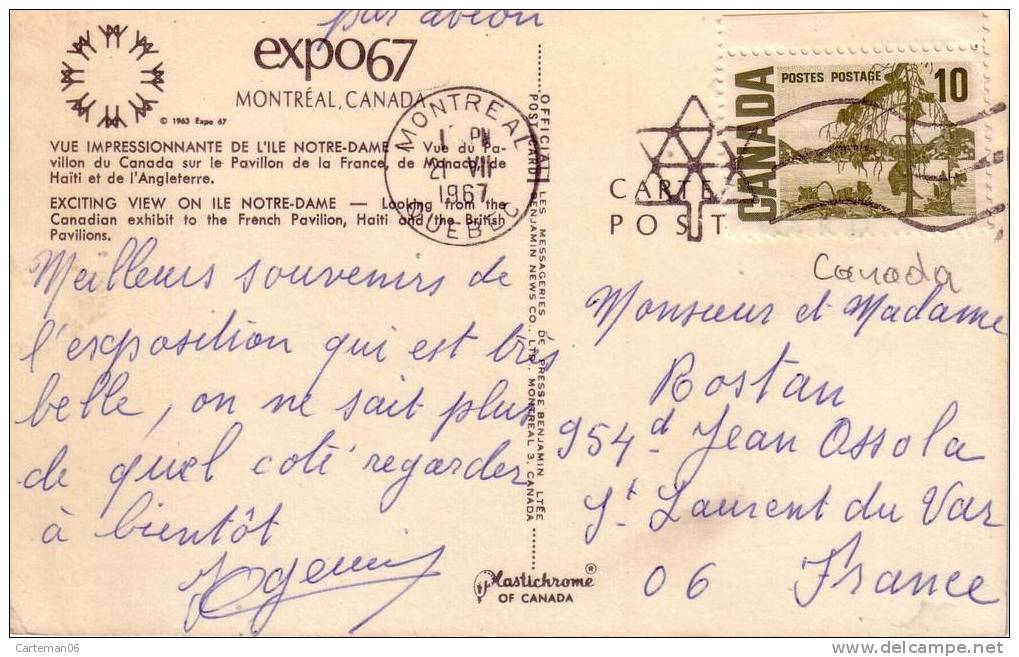 par avion
expo67
MONTRÉAL, CANADA
© 1963 Expo 67
VUE IMPRESSIONNANTE DE L'ILE NOTRE-DAME — Vue du Pa-
villon du Canada sur le Pavillon de la France, de Monaco, de
Haïti et de l'Angleterre.
EXCITING VIEW ON ILE NOTRE-DAME — Looking from the
Canadian exhibit to the French Pavilion, Haiti and the British
Pavilions.
Meilleurs souvenirs de
l'exposition qui est très
belle, on ne sait plus
de quel coté regarder
à bientôt
MONTREAL
PM
21 VII
1967
QUEBEC
OFFICIAL POST CARD
LES MESSAGERIES DE PRESSE BENJAMIN LTÉE
BENJAMIN NEWS CO., LTD., MONTREAL 3, CANADA
Plastichrome®
OF CANADA
CARTE
POST
CANADA
POSTES POSTAGE
10
Canada
Monsieur et Madame
Rostan
954 d Jean Ossola
St Laurent du Var
06 France
Carteman06